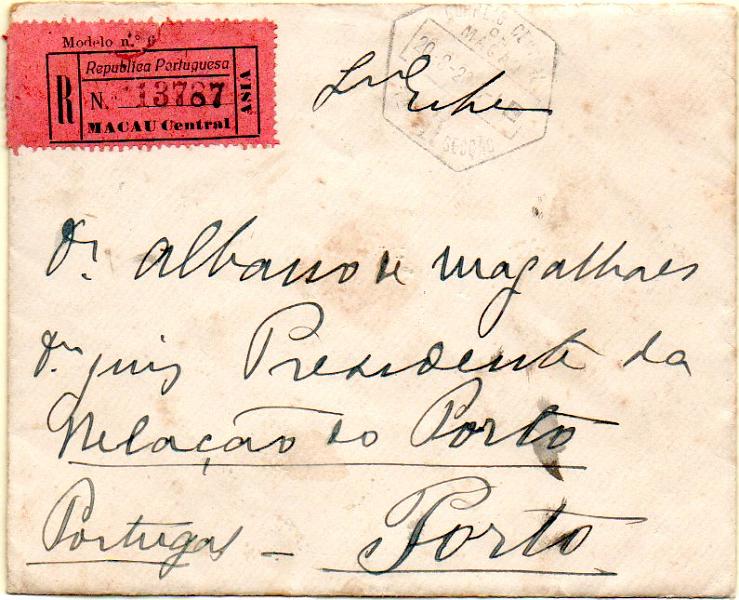 Modelo n.º 6
Republica Portuguesa
R
N. 13767
ASIA
MACAU Central
CORREIO DE
MACAU
SECÇÃO
Dr. Albano de Magalhaes
Dm. juiz Presidente da
Relação do Porto
Portugal – Porto